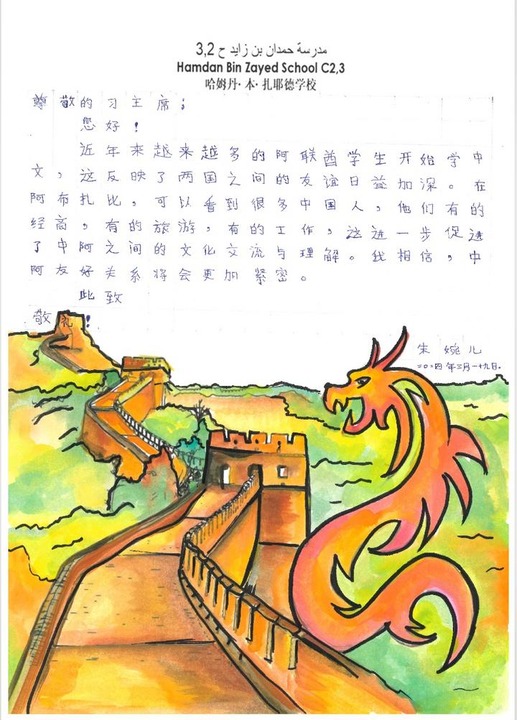 مدرسة حمدان بن زايد ح 3,2
Hamdan Bin Zayed School C2,3
哈姆丹·本·扎耶德学校
尊敬的习主席；
您好！
近年来越来越多的阿联酋学生开始学中
文，这反映了两国之间的友谊日益加深。在
阿布扎比，可以看到很多中国人，他们有的
经商，有的旅游，有的工作，这进一步促进
了中阿之间的文化交流与理解。我相信，中
阿友好关系将会更加紧密。
此致
敬礼！
朱婉儿
二〇二四年三月二十九日。